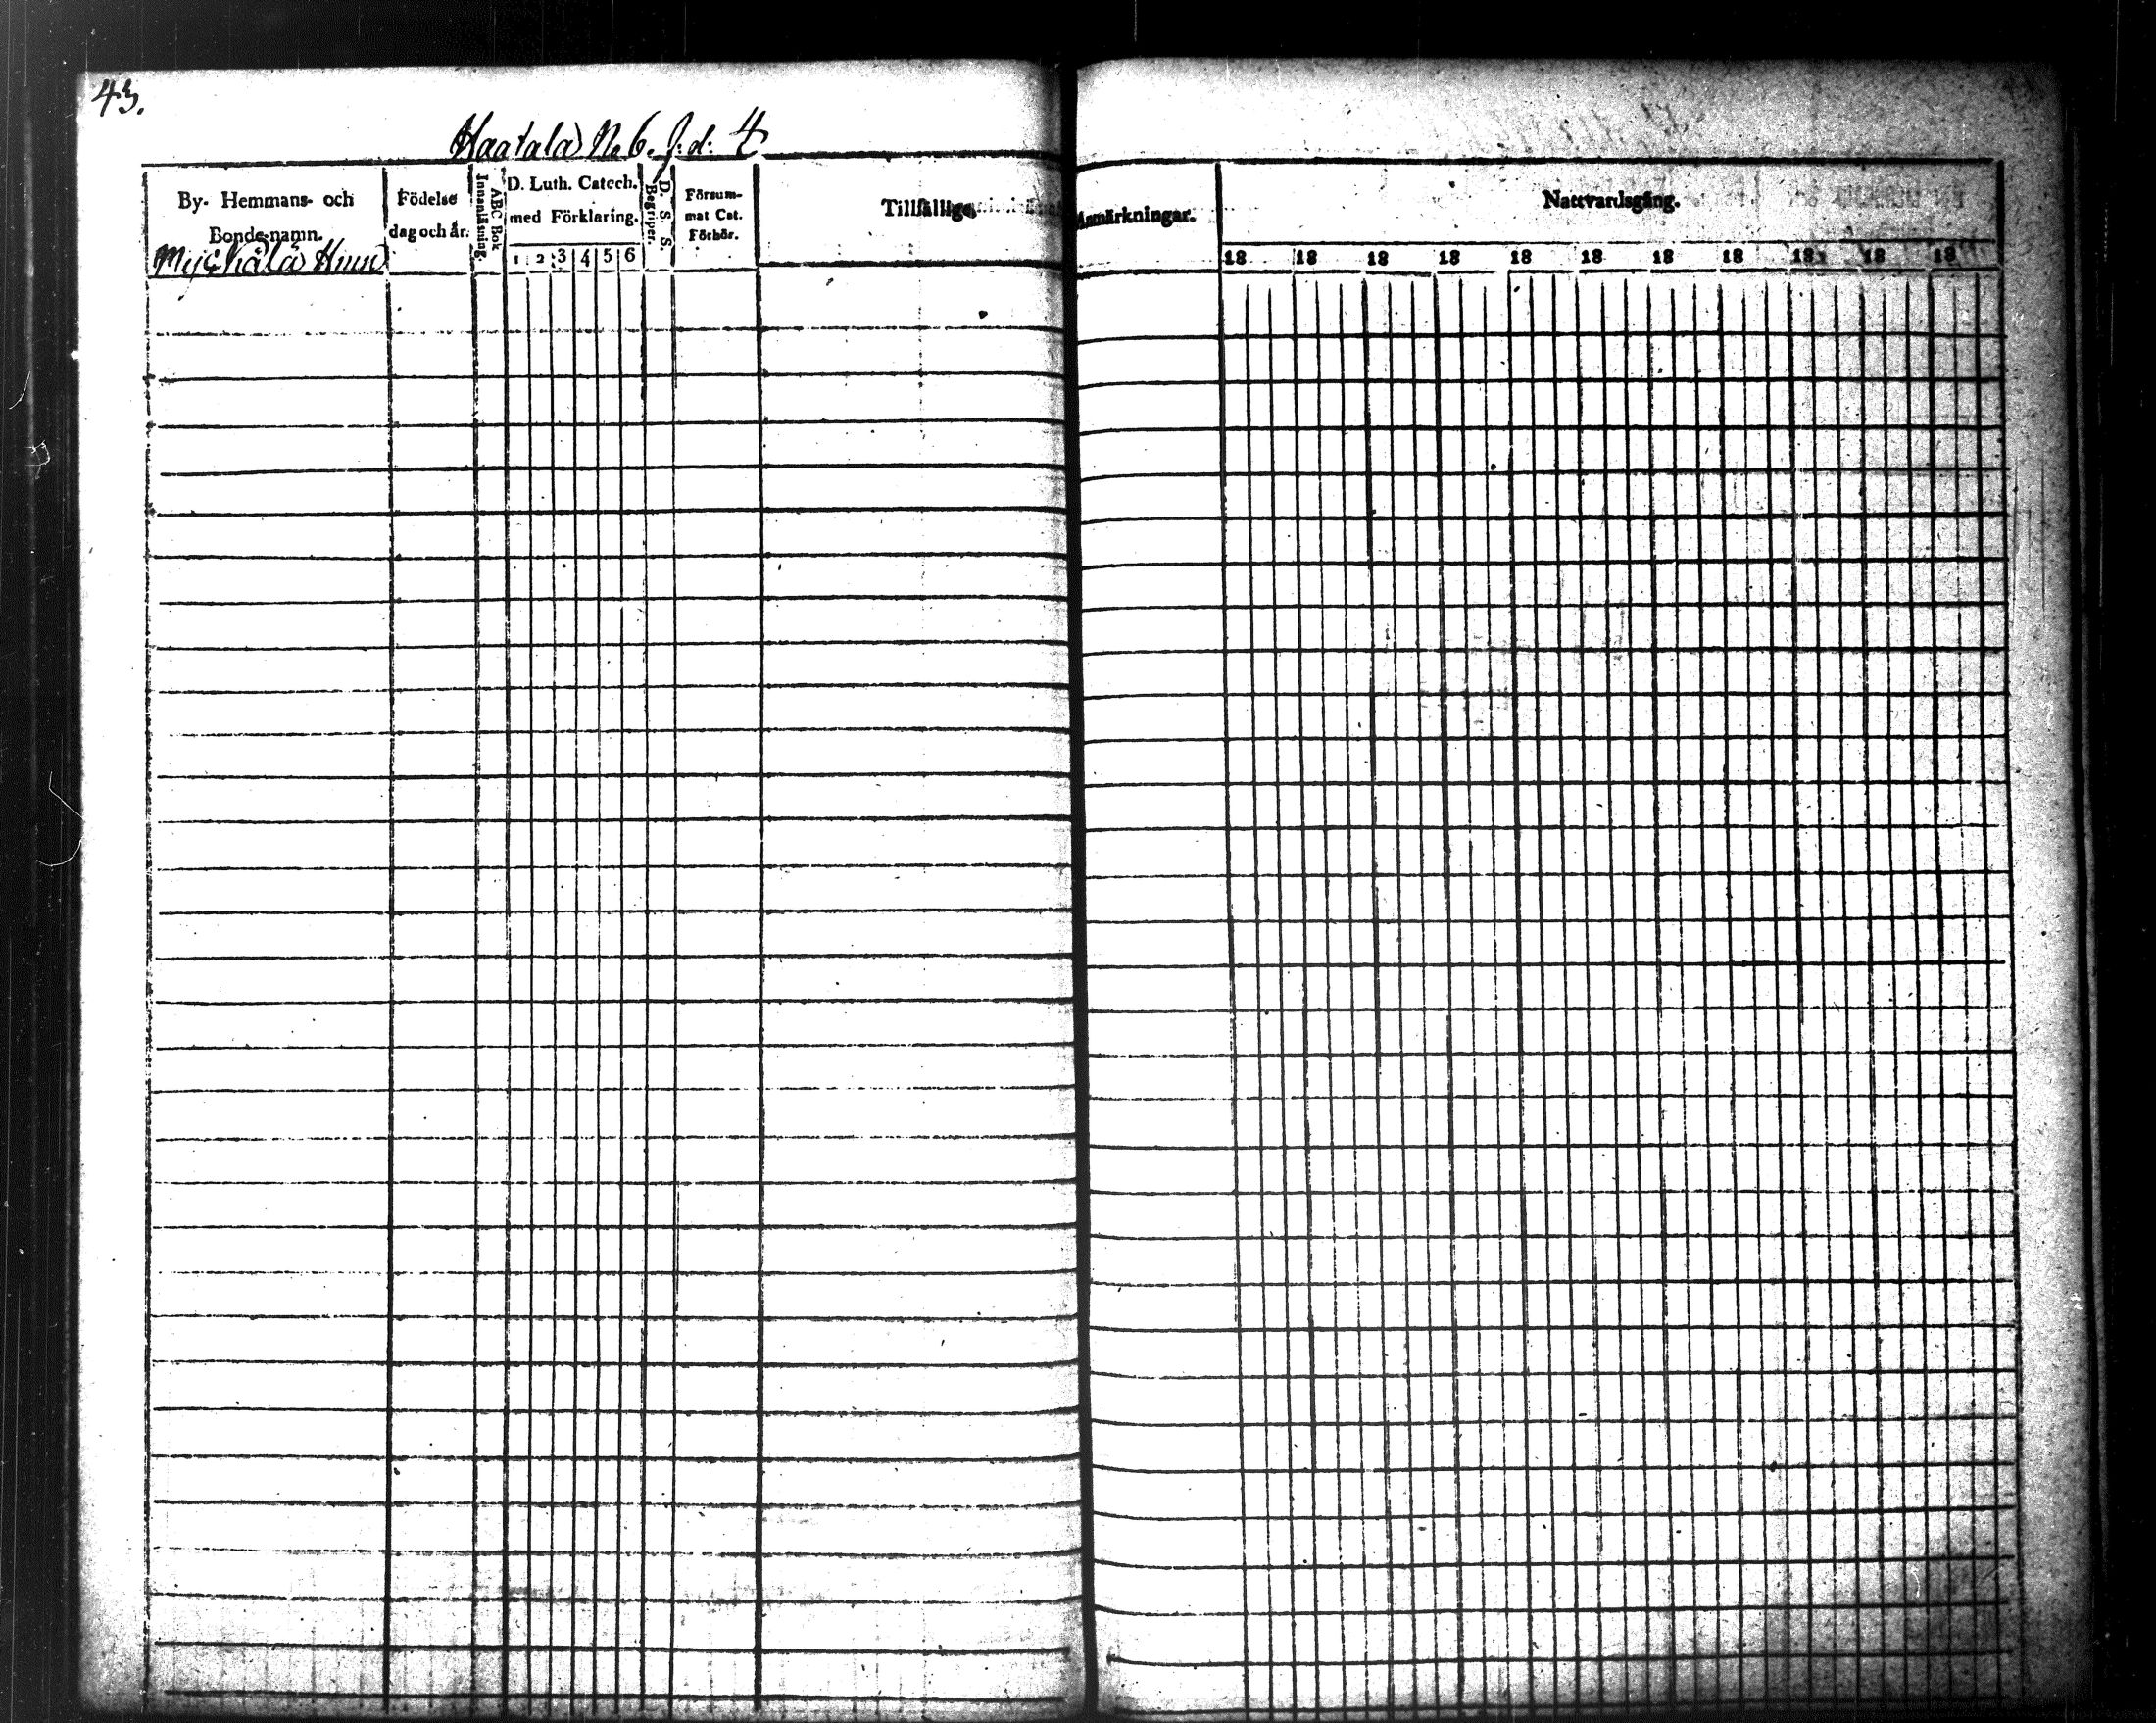 43.
Kaatala No 6. J. d: 4
By- Hemmans- och
Bonde-namn.
Födelse
dag och år.
ABC Bok
Innanläsning.
D. Luth. Catech.
med Förklaring.
1 2 3 4 5 6
D. S. S.
Begriper.
Försum-
mat Cat.
Förhör.
Tillfällige
Anmärkningar.
Nattvardsgång.
18 18 18 18 18 18 18 18 18 18 18